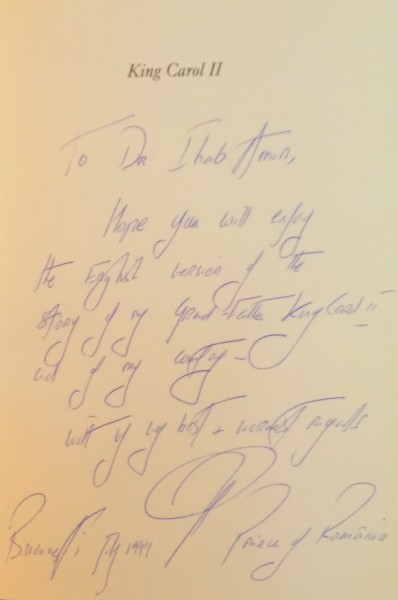 King Carol II
To Dr Ihab Amin,
Hope you will enjoy
the English version of the
story of my Grand-Father King Carol II
and of my country -
with my best + warmest regards
Prince of România
1999